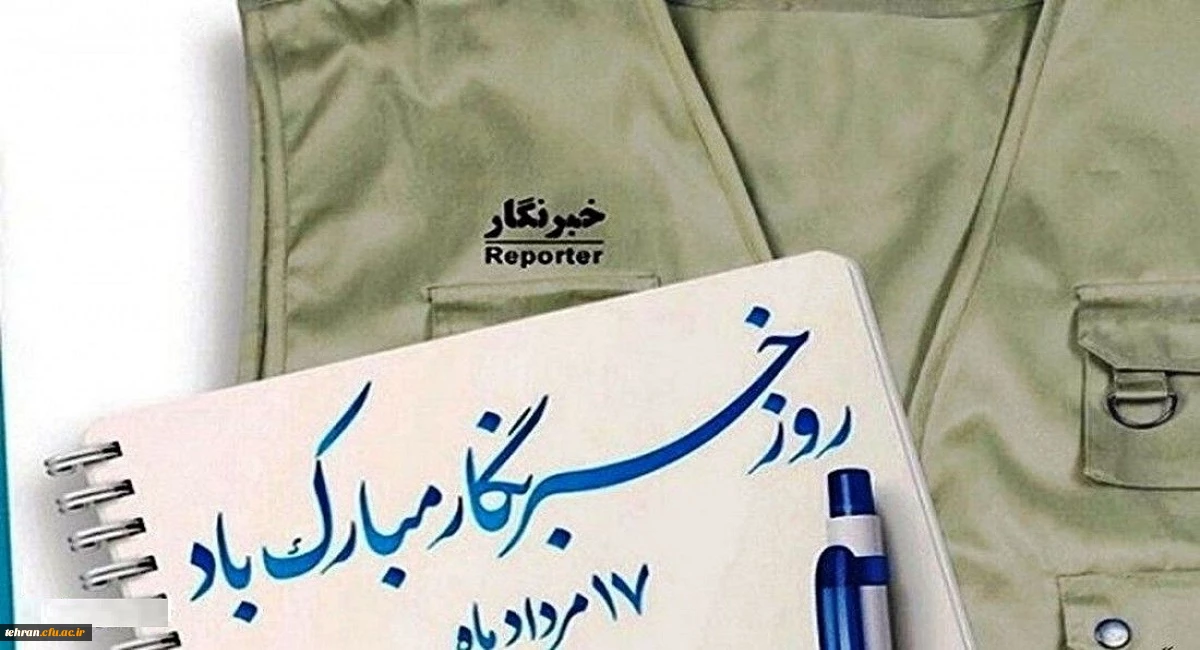 خبرنگار
Reporter
روز خبرنگار مبارک باد
۱۷ مرداد ماه
tehran.cfu.ac.ir